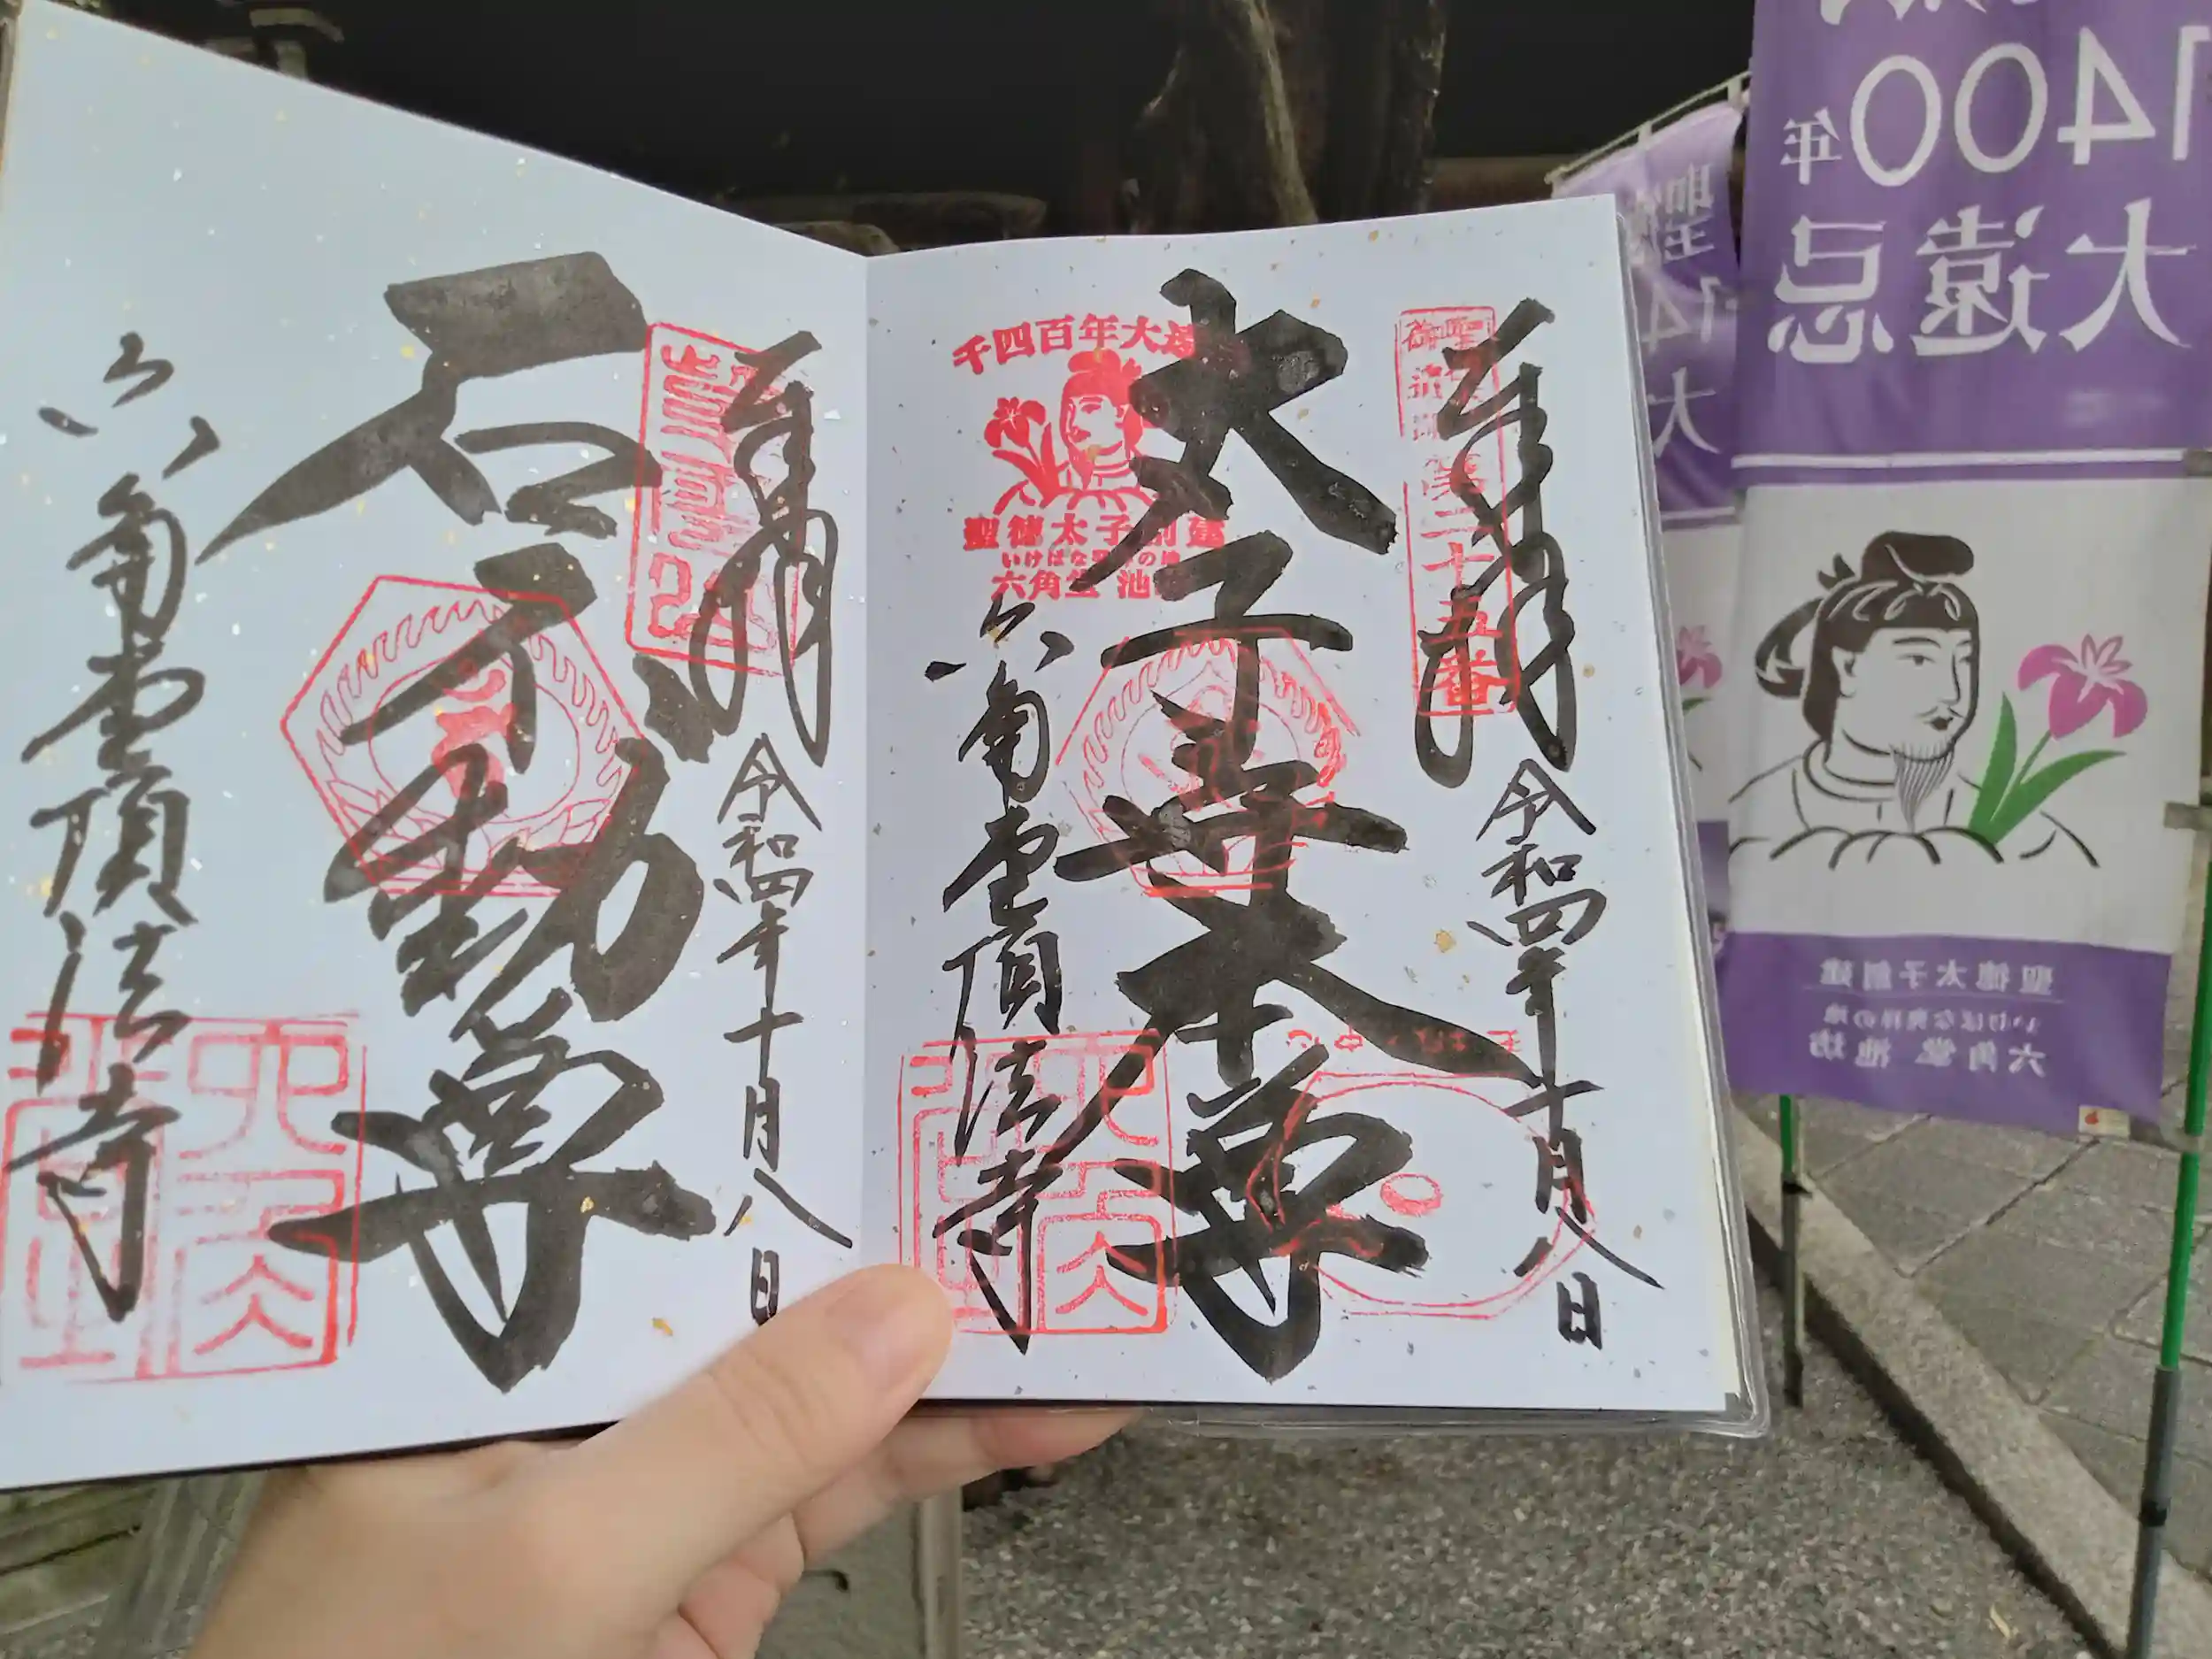 奉拝
令和四年十月八日
聖徳太子
御遺跡第二十五番
太子尊本尊
千四百年大遠
聖徳太子創建
いけばな発祥の地
六角堂 池坊
六角堂頂法寺
六角堂印
奉拝
令和四年十月八日
石不動尊
六角堂頂法寺
六角堂印
1400年
大遠忌
聖徳太子創建
いけばな発祥の地
六角堂 池坊
聖
14
大